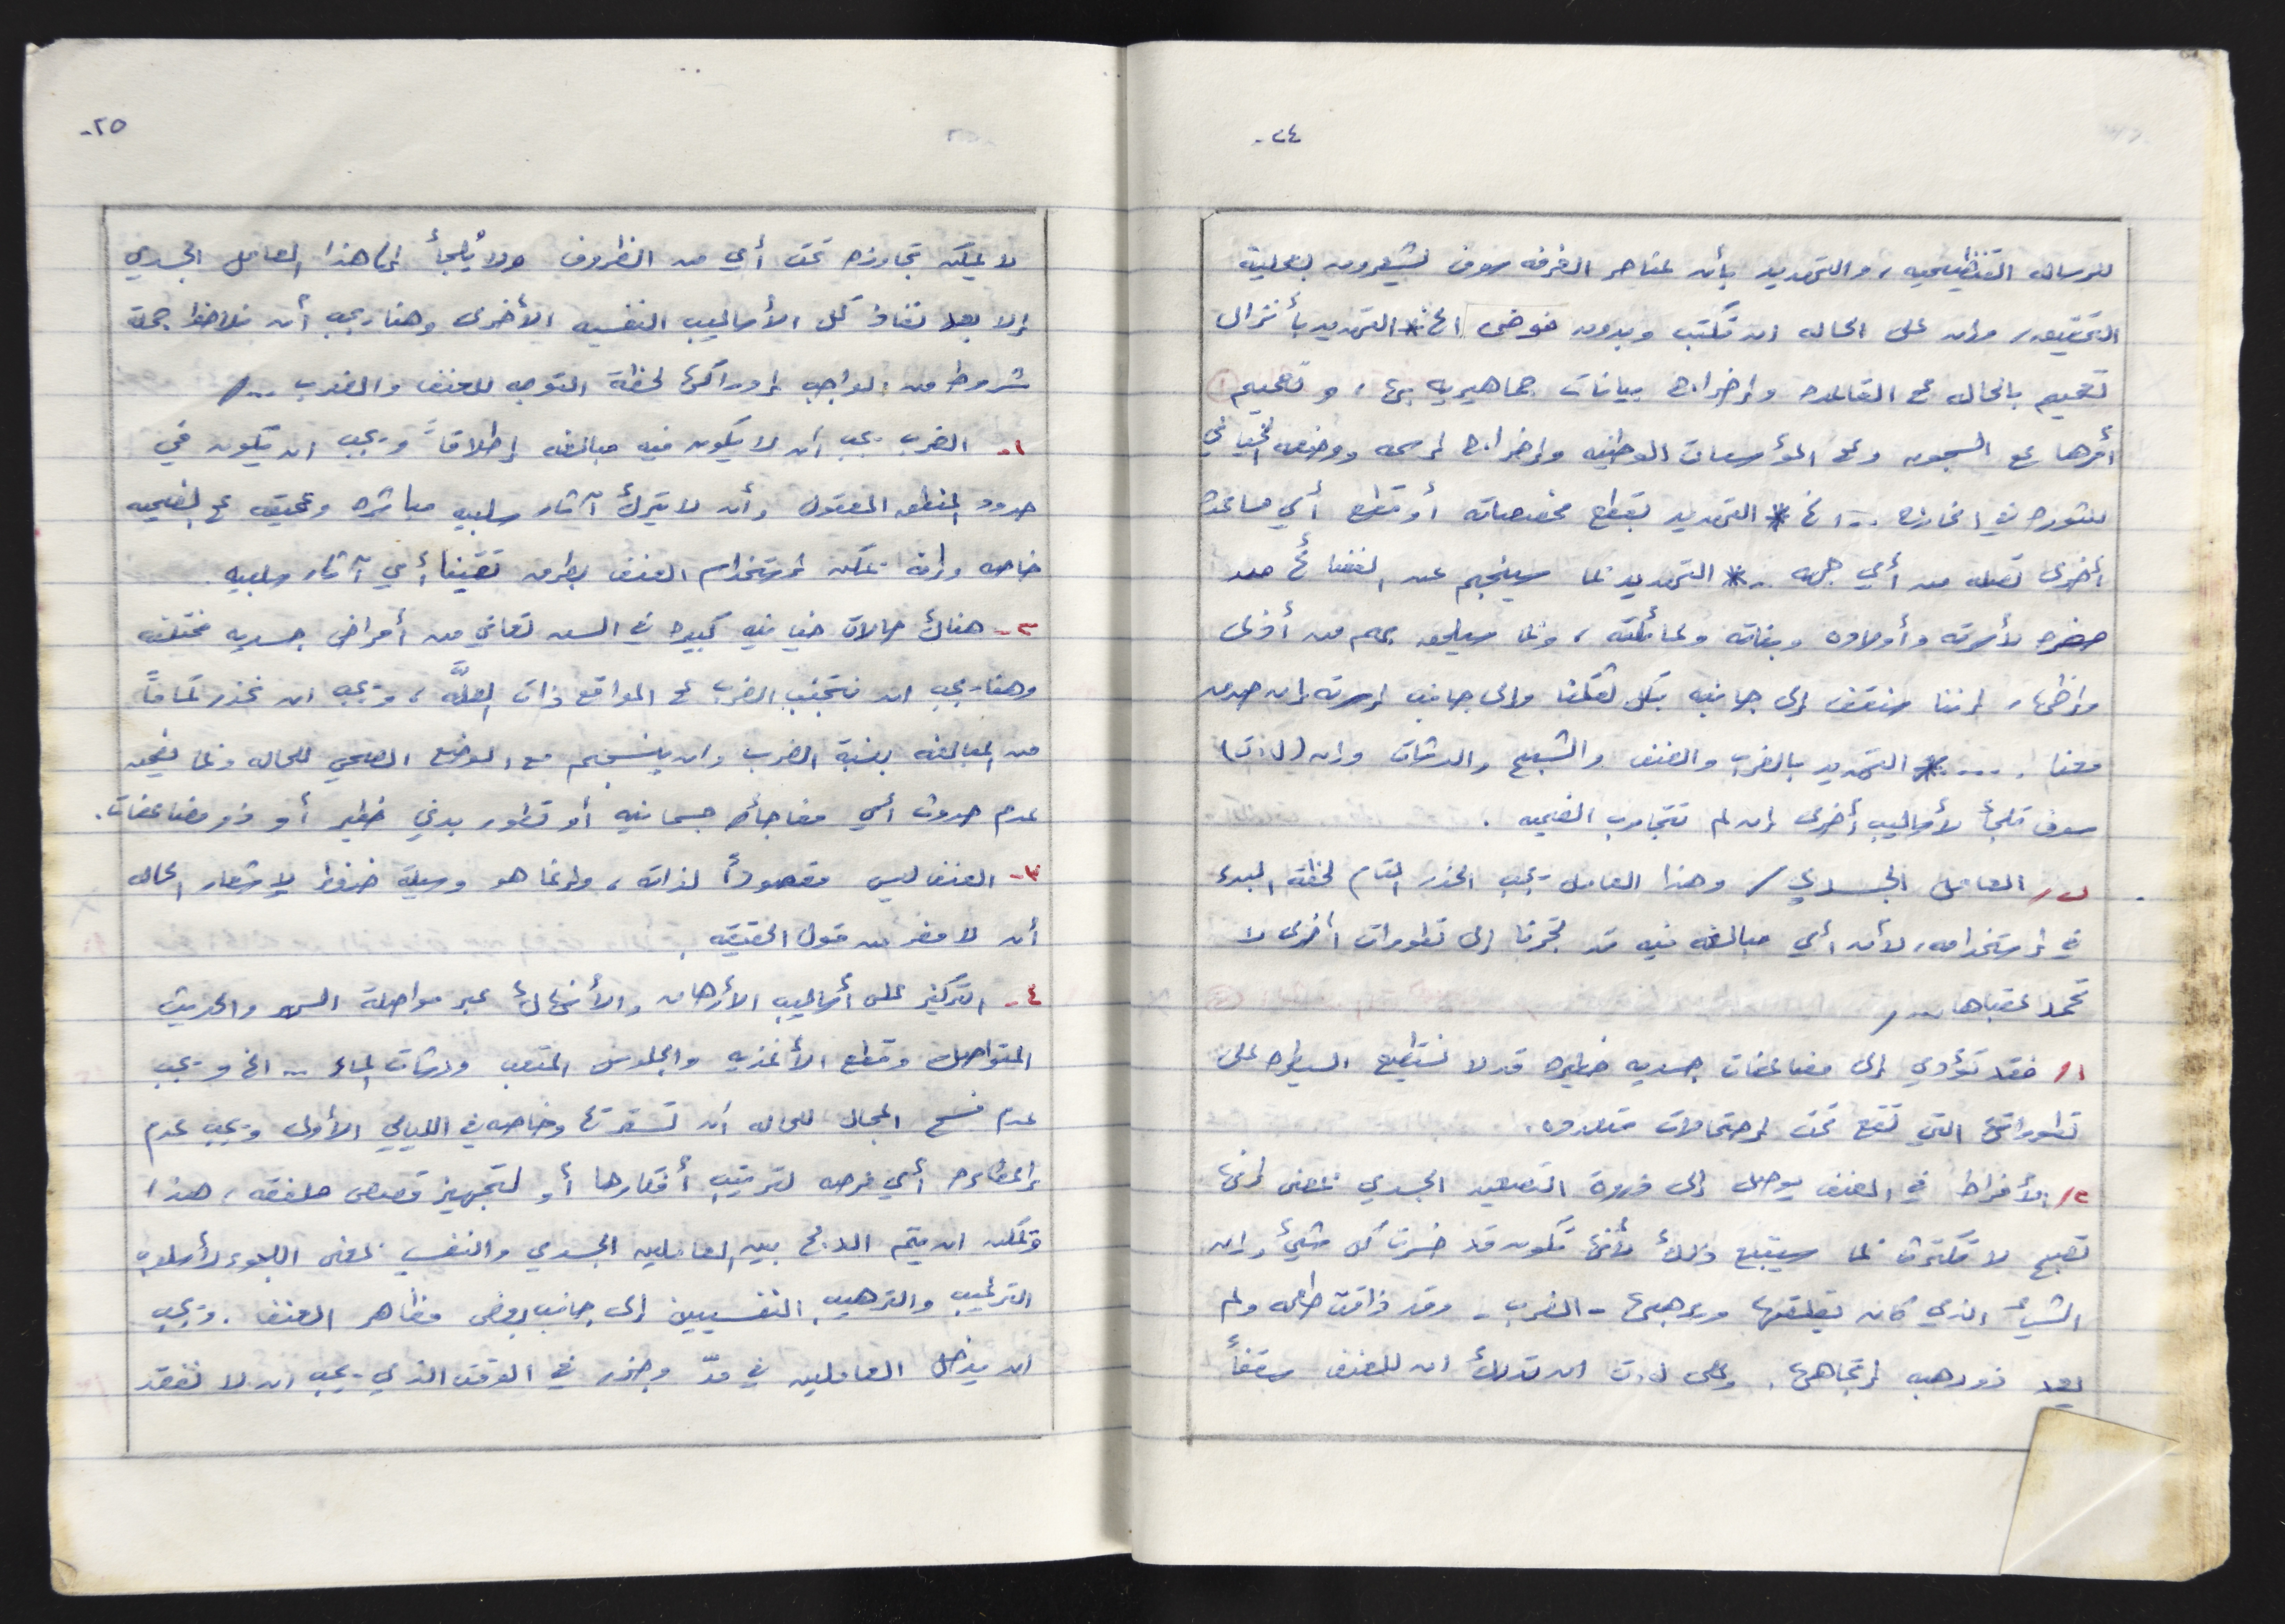 ٢٤-
للرساله التنظيميه، والتهديد بأن عناصر الغرفه سوف يشعرون بعملية
التحقيق، وان على الحاله ان تكتب وبدون فوضى الخ * التهديد بأنزال
تعميم بالحاله على القاعده وإخراج بيانات جماهيريه بها، وتعميم
أمرها على السجون وعلى المؤسسات الوطنيه وإخراج اسمه ووضعه الخياني
للثوره في الخارج .. الخ * التهديد بقطع مخصصاته أو قطع أي مساعده
أخرى تصله من أي جهه .. * التهديد بما سينجم عن الفضائح من
ضرر لأسرته وأولاده وبناته وعائلته، وما سيلحق بهم من أذى
وإظهار إننا سنقف إلى جانبه بكل ثقلنا والى جانب اسرته إن صدق
معنا .... * التهديد بالضرب والعنف والشبح والدشات وان (ل.ت)
سوف تلجأ لأساليب أخرى إن لم تتجاوب الضحيه .
ب/ العامل الجسدي / وهذا العامل يجب الحذر التام لحظة البدء
في إستخدامه، لأن أي مبالغه فيه قد تجرنا إلى تطورات أخرى لا
تحمد عقباها ../
١/ فقد تؤدي إلى مضاعفات جسديه خطيره قد لا نستطيع السيطره على
تطوراتها التي تقع تحت إحتمالات متعدده.
٢/ الأفراط في العنف يوصل إلى ذروة التصعيد الجسدي بمعنى إنها
تصبح لا تكترث بما سيتبع ذلك لأنها تكون قد خسرت كل شيئ وان
الشيئ الذي كان يقلقها ويرهبها - الضرب - وقد ذاقت طعمه ولم
يعد ذو رهبه إتجاهها. وعلى ل.ت ان تدرك ان للعنف سقفاً
٢٥-
لا يمكن تجاوزه تحت أي من الظروف ولا يُلجأ إلى هذا العامل الجسدي
إلا بعد نفاذ كل الأساليب النفسيه الأخرى وهنا يجب أن نلاحظ جملة
شروط من الواجب إدراكها لحظة التوجه للعنف والضرب ../
١- الضرب يجب ان لا يكون فيه مبالغه إطلاقاً ويجب ان يكون في
حدود المنطق المعقول وأن لا يترك آثار سلبيه مباشره وعميقه على الضحيه
خاصه وانه يمكن إستخدام العنف بطرق تقينا أي آثار سلبيه.
٢- هناك حالات خيانيه كبيره في السن تعاني من أمراض جسديه مختلفه
وهنا يجب ان نتجنب الضرب على المواقع ذات العلَّه، ويجب ان نحذر تماماً
من المبالغه بنسبة الضرب وان ينسجم مع الوضع الصحي للحاله وبما يضمن
عدم حدوث أي مفاجأه جسمانيه أو تطور بدني خطير أو ذو مضاعفات.
٣- العنف ليس مقصوداً لذاته، وإنما هو وسيلة ضغط لإشعار الحاله
أن لا مفر من قول الحقيقه.
٤- التركيز على أساليب الأرهاق والأنهاك عبر مواصلة السهر والحديث
المتواصل وقطع الأغذيه والجلوس المتعب ودشات الماء .. الخ ويجب
عدم فسح المجال للحاله ان تسترخي وخاصه في الليالي الأولى ويجب عدم
إعطاءه أي فرصه لترتيب أفكارها أو لتجهيز قصص ملفقه، هذا
ويمكن ان يتم الدمج بين العاملين الجسدي والنفسي بمعنى اللجوء لأسلوب
الترغيب والترهيب النفسيين إلى جانب بعض مظاهر العنف. ويجب
ان يدخل العاملين في مدّ وجزر في الوقت الذي يجب ان لا نفقد